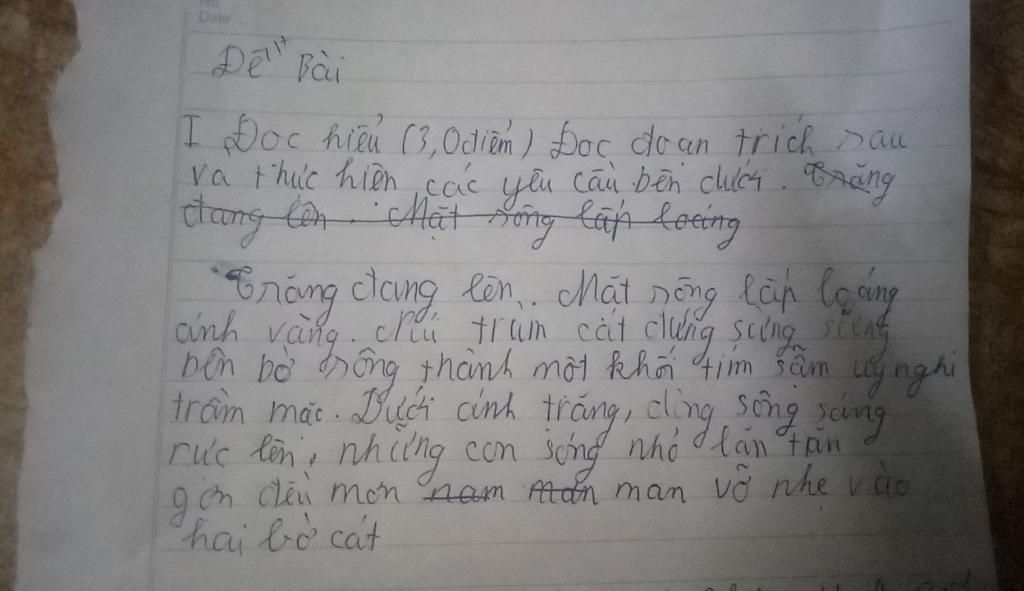 No.
Date
Đề Bài
I Đọc hiểu (3,0điểm) Đọc đoạn trích sau
va thực hiện các yêu cầu bên dưới. Trăng
đang lên. Mặt sông lấp loáng
Trăng đang lên. Mặt sông lấp loáng
ánh vàng. Núi trùm cát đứng sừng sững
bên bờ sông thành một khối tím sẫm uy nghi
trầm mặc. Dưới ánh trăng, dòng sông sáng
rực lên, những con sóng nhỏ lăn tăn
gợn đều mơn man vỗ nhẹ vào
hai bờ cát